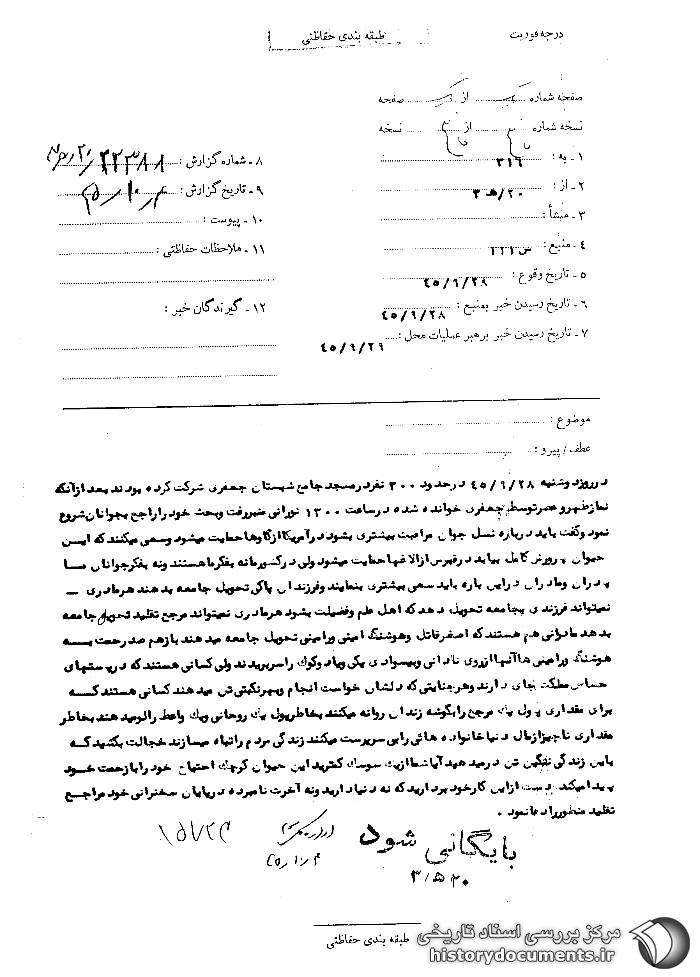 درجه فوریت
طبقه بندی حفاظتی
صفحه شماره یک از یک صفحه
نسخه شماره از نسخه
۱ - به : ۳۱۶
۲ - از : ۲۰/ هـ ۳
۳ - منشأ :
۴ - منبع : س ۲۲۱
۵ - تاریخ وقوع : ۴۵/۶/۲۸
۶ - تاریخ رسیدن خبر بمنبع : ۴۵/۶/۲۸
۷ - تاریخ رسیدن خبر برهبر عملیات محل : ۴۵/۶/۲۹
۸ - شماره گزارش : ۲۲۳۸۸
۹ - تاریخ گزارش :
۱۰ - پیوست :
۱۱ - ملاحظات حفاظتی :
۱۲ - گیرندگان خبر :
موضوع :
عطف / پیرو :
در روز دوشنبه ۴۵/۶/۲۸ در حدود ۳۰۰ نفر در مسجد جامع شبستان جعفری شرکت کرده بودند بعد از آنکه
نماز ظهر و عصر توسط جعفری خوانده شد در ساعت ۱۳۰۰ نورانی منبر رفت و بحث خود را راجع بجوانان شروع
نمود و گفت باید درباره نسل جوان مراقبت بیشتری بشود در آمریکا از گاوها حمایت میشود وسعی میکنند که ایـن
حیوان پرورش کامل بیابد در قبرس از الاغها حمایت میشود ولی در کشور ما نه بفکر ما هستند ونه بفکر جوانان مـا
پدران ومادران در این باره باید سعی بیشتری بنمایند وفرزندان پاکی تحویل جامعه بدهند هر مادری –
نمیتواند فرزندی بجامعه تحویل دهد که اهل علم وفضیلت بشود هر مادری نمیتواند مرجع تقلید تحویل جامعه
بدهد مادرانی هم هستند که اصغر قاتل وهوشنگ امینی ورامینی تحویل جامعه میدهند باز هم صد رحمت بـــه
هوشنگ ورامینی ها آنها از روی نادانی وبیسوادی یکی ویا دو کودک را سر بریدند ولی کسانی هستند که در پستهای
حساس مملکت جای دارند وهر جنایتی که دلشان خواست انجام وبهر ننگینی تن میدهند کسانی هستند کـــه
برای مقداری پول یک مرجع را بگوشه زندان روانه میکنند بخاطر پول یک روحانی ویک واعظ را لو میدهند بخاطر
مقداری ناچیز از مال دنیا خانواده هائی را بی سرپرست میکنند زندگی مردم را تباه میسازند خجالت بکشید کـه
باین زندگی ننگین تن در میدهید آیا شما از یک سوسک کمترید این حیوان کوچک احتیاج خود را با زحمت خـــود
پیدا میکند دست از این کار خود بردارید که نه دنیا دارید ونه آخرت نامبرده در پایان سخنرانی خود مراجـــع
تقلید منظور را دعا نمود .
بایگانی شود
۲۰ هـ ۳
طبقه بندی حفاظتی
مرکز بررسی اسناد تاریخی
historydocuments.ir